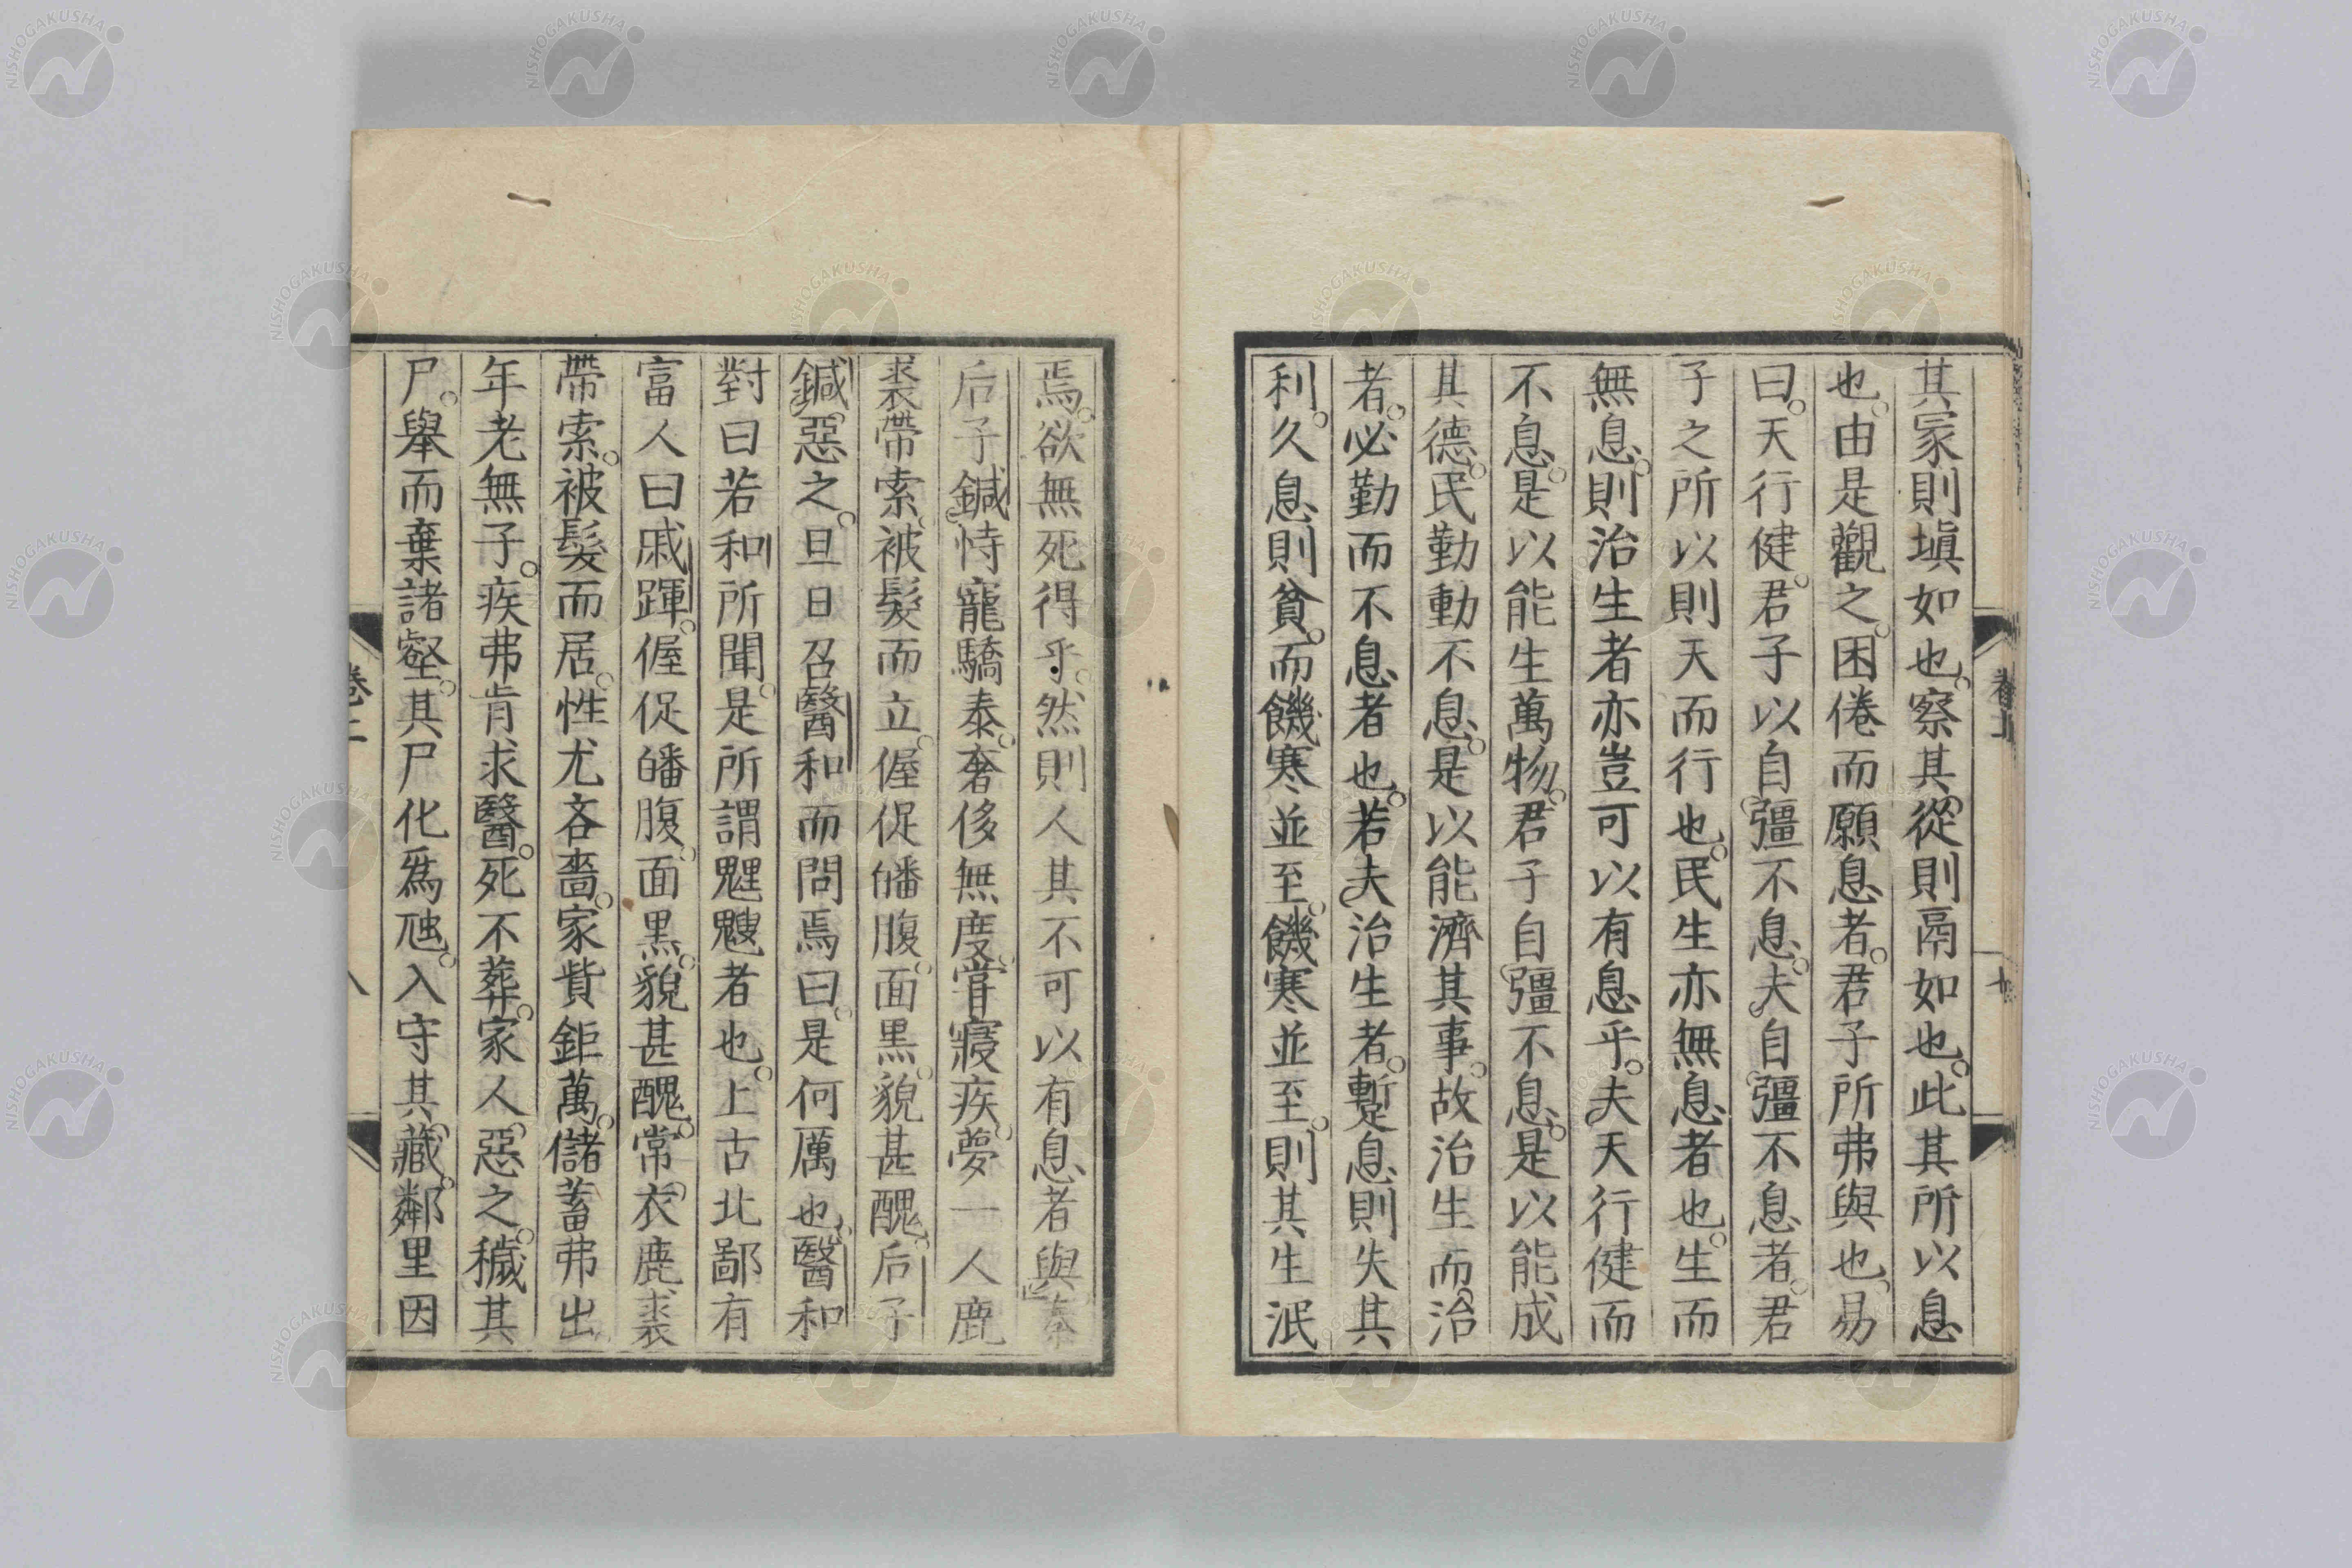 其冢則塡如也。察其從則鬲如也。此其所以息
也。由是觀之。困倦而願息者。君子所弗與也。易
曰。天行健。君子以自彊不息。夫自彊不息者。君
子之所以則天而行也。民生亦無息者也。生而
無息。則治生者亦豈可以有息乎。夫天行健而
不息。是以能生萬物。君子自彊不息。是以能成
其德。民勤動不息。是以能濟其事。故治生而治
者。必勤而不息者也。若夫治生者。蹔息則失其
利。久息則貧。而饑寒並至。饑寒並至。則其生泯
焉。欲無死得乎。然則人其不可以有息者與秦
后子鍼恃寵驕泰。奢侈無度。嘗寢疾。夢一人鹿
裘帶索。被髮而立。偓促皤腹。面黑。貌甚醜。后子
鍼惡之。旦日召醫和而問焉。曰。是何厲也。醫和
對曰若和所聞。是所謂魓䰚者也。上古北鄙有
富人曰戚踵。偓促皤腹。面黑。貌甚醜。常衣鹿裘
帶索。被髮而居。性尤吝嗇。家貲鉅萬。儲蓄弗出
年老無子。疾弗肯求醫。死不葬。家人惡之。穢其
尸。舉而棄諸壑。其尸化爲䖝。入守其藏。鄰里因
卷上
十
卷上
NISHOGAKUSHA